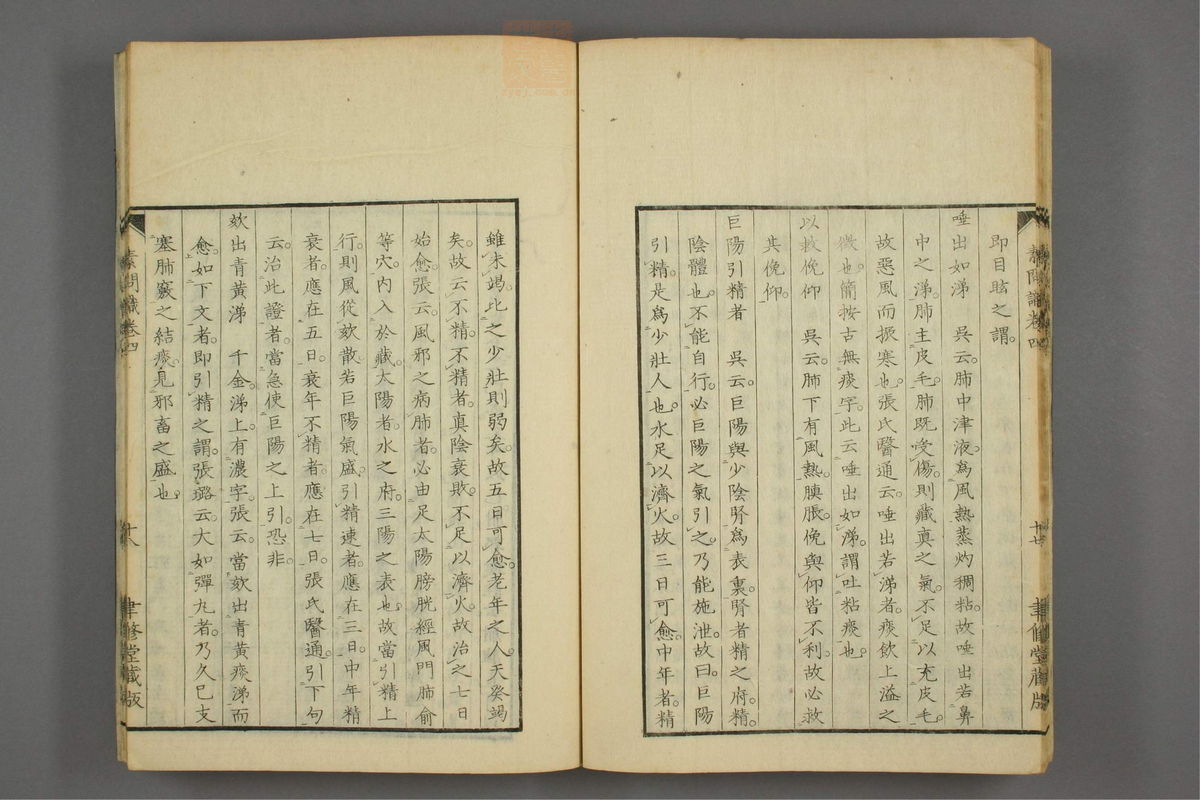 即目眩之謂。
唾出如涕　吳云。肺中津液。為風熱蒸灼稠粘。故唾出若鼻
中之涕。肺主皮毛。肺既受傷。則藏真之氣。不足以充皮毛。
故惡風而振寒也。張氏醫通云。唾出若涕者。痰飲上溢之
微也。簡按古無痰字。此云唾出如涕。謂吐粘痰也。
以救俛仰　吳云。肺下有風熱䐜脹。俛與仰皆不利。故必救
其俛仰。
巨陽引精者　吳云。巨陽與少陰腎為表裏。腎者精之府。精。
陰體也。不能自行。必巨陽之氣引之。乃能施泄。故曰。巨陽
引精。是為少壯人也。水足以濟火。故三日可愈。中年者。精
雖未竭。比之少壯則弱矣。故五日可愈。老年之人。天癸竭
矣。故云不精。不精者。真陰衰敗。不足以濟火。故治之七日
始愈。張云。風邪之病肺者。必由足太陽膀胱經風門肺俞
等穴。內入於藏。太陽者。水之府。三陽之表也。故當引精上
行。則風從欬散。若巨陽氣盛。引精速者。應在三日。中年精
衰者。應在五日。衰年不精者。應在七日。張氏醫通。引下句
云。治此證者。當急使巨陽之上引。恐非。
欬出青黃涕　千金。涕上有濃字。張云。當欬出青黃痰涕而
愈。如下文者。即引精之謂。張璐云。大如彈丸者。乃久已支
塞肺竅之結痰。見邪畜之盛也。
素問識卷四
十八
聿修堂藏版
卷四
聿修堂藏版